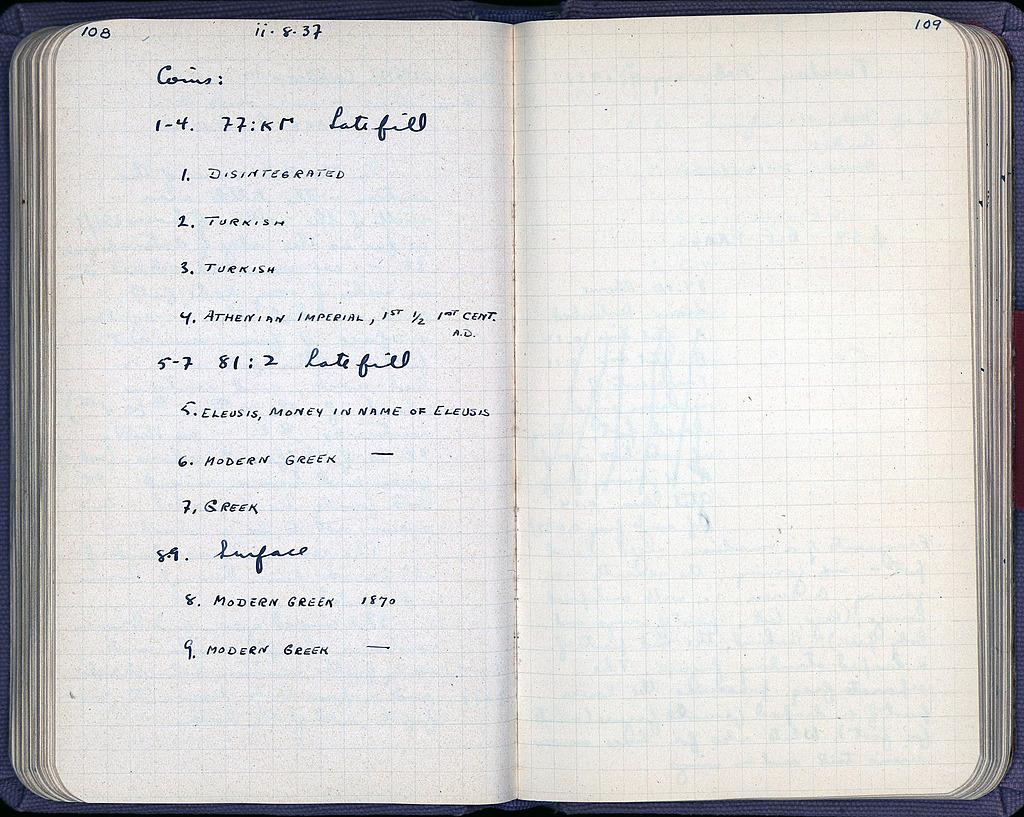 108
ii · 8 · 37
109
Coins:
1-4. 77:ΚΓ Late fill
1. DISINTEGRATED
2. TURKISH
3. TURKISH
4. ATHENIAN IMPERIAL, 1ST 1/2 1ST CENT.
A.D.
5-7 81:2 Late fill
5. ELEUSIS, MONEY IN NAME OF ELEUSIS
6. MODERN GREEK —
7. GREEK
8-9. Surface
8. MODERN GREEK 1870
9. MODERN GREEK —